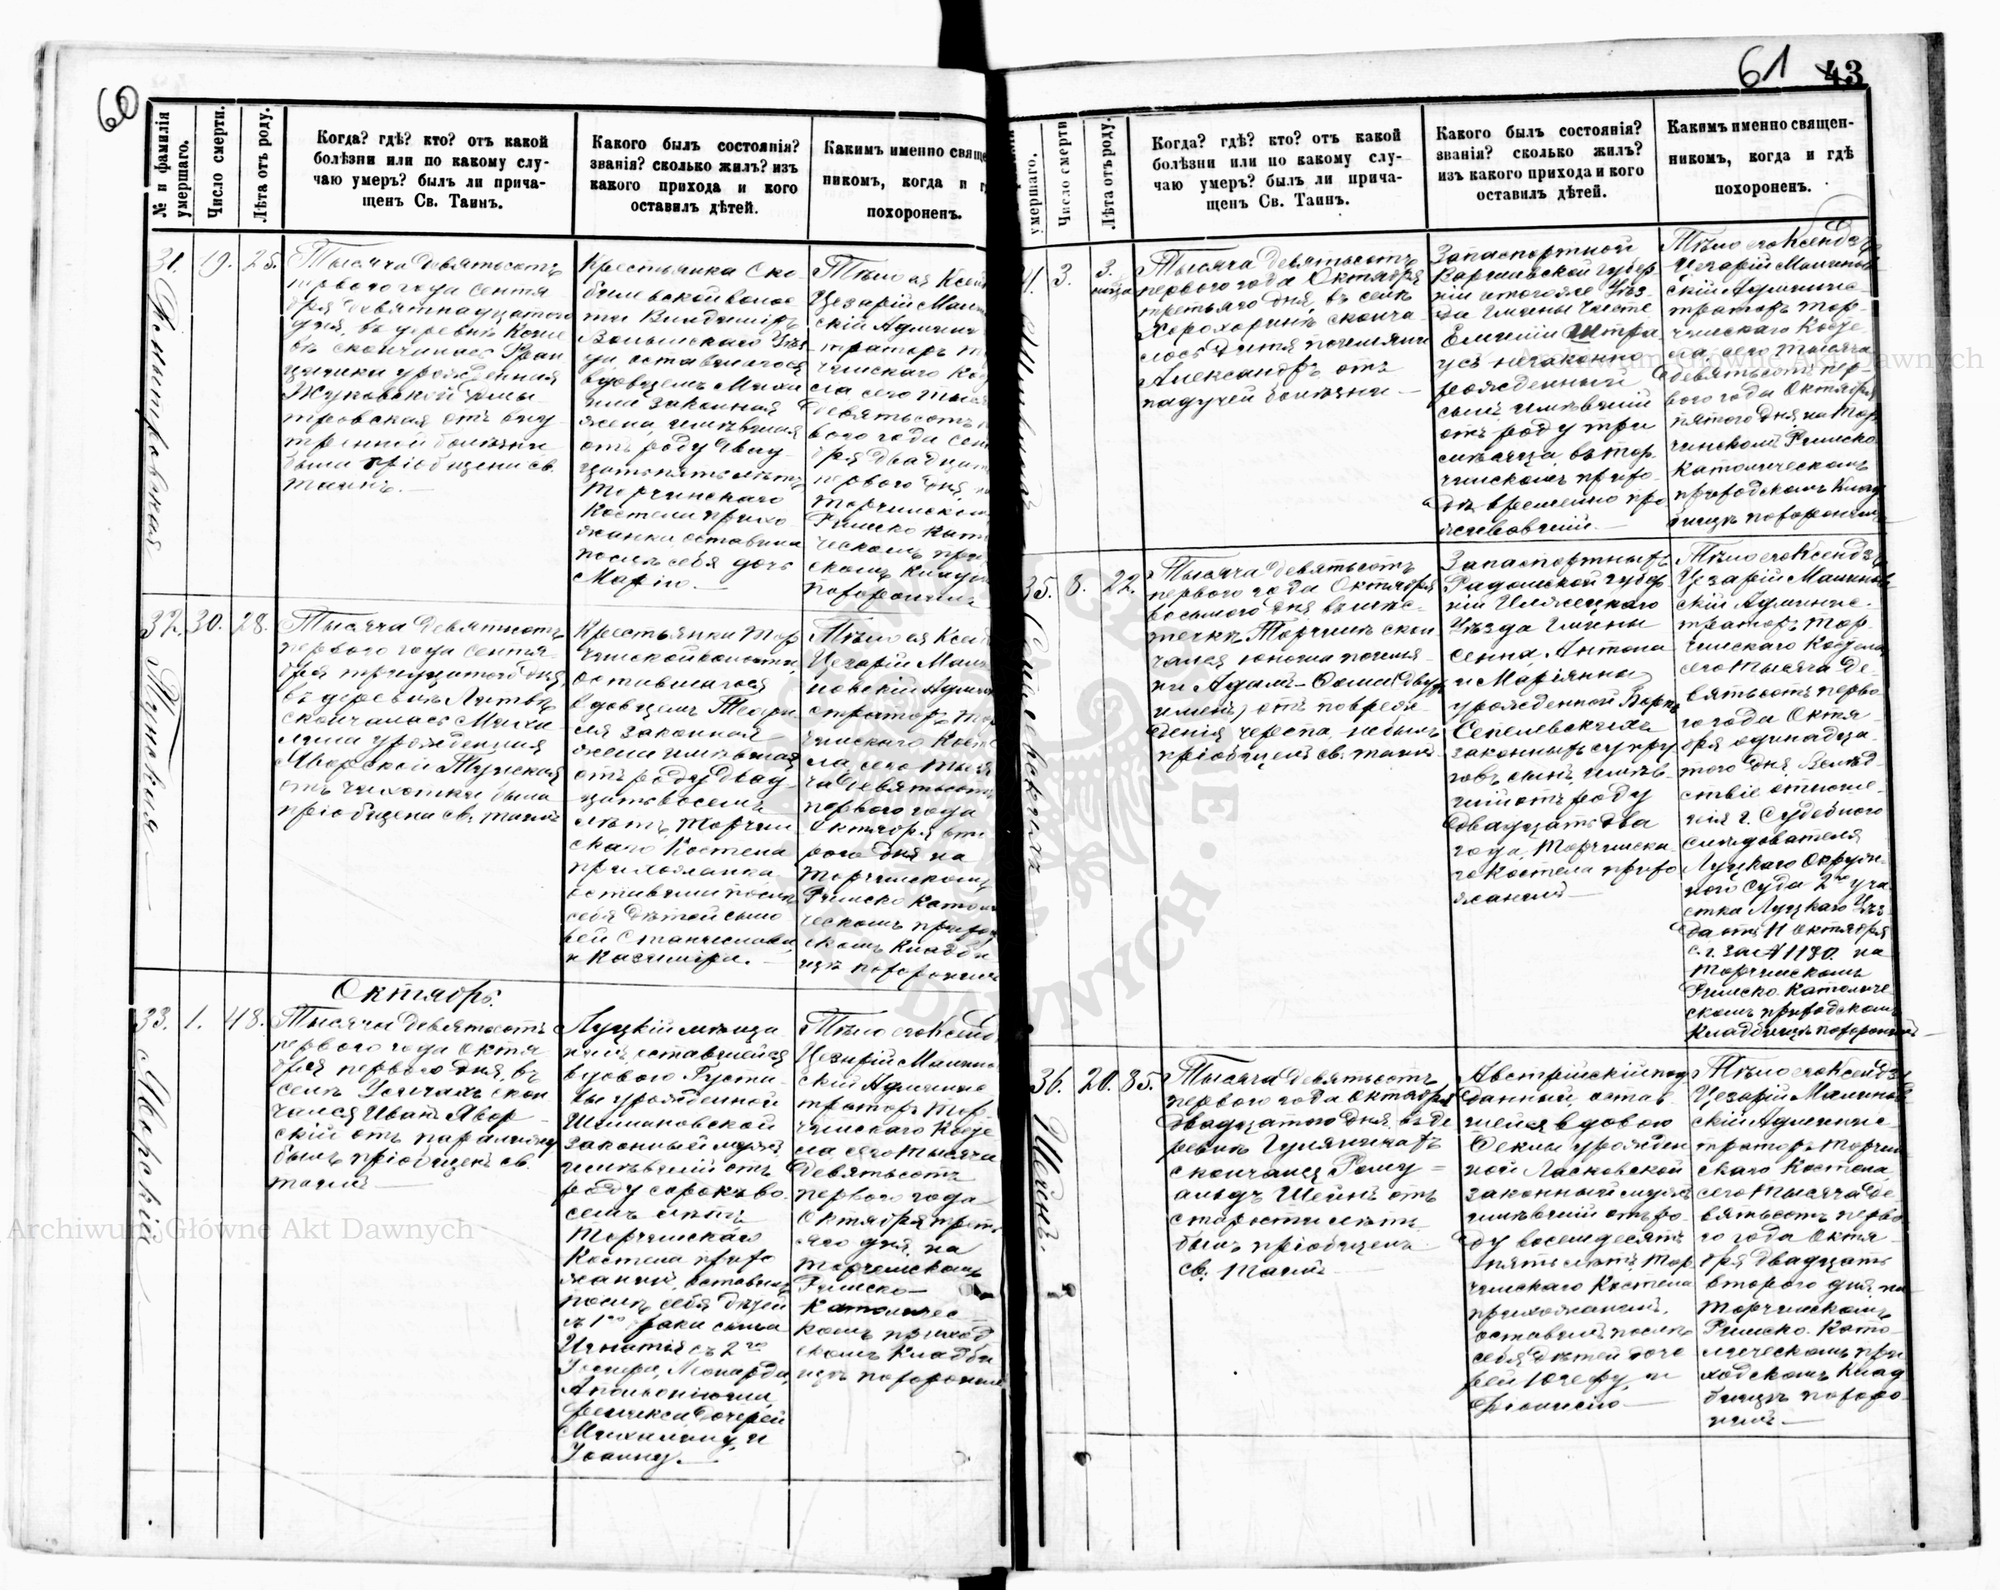 60
№ и фамилія умершаго.
Число смерти.
Лѣта отъ роду.
Когда? гдѣ? кто? отъ какой
болѣзни или по какому слу-
чаю умеръ? былъ ли прича-
щенъ Св. Таинъ.
Какого былъ состоянія?
званія? сколько жилъ? изъ
какого прихода и кого
оставилъ дѣтей.
Какимъ именно свяще
никомъ, когда и г
похороненъ.
31.
19.
25.
Тысяча девятьсотъ
перваго года Сентя
бря девятнадцатого
дня, въ деревнѣ
скончалась Фран
цишка урожденная
Жуковской
тровская отъ вну
тренной болѣзни
была пріобщена св.
таинъ.
Крестьянка
Владимiръ
Волынскаго Уѣз
да оставшагося
вдовцемъ Миха
ила законная
жена, имѣвшая
отъ роду двад
цать пять лѣтъ
Торчинскаго
Костела прихо
жанка оставила
послѣ себя дочь
Марію.
Тѣло ея Ксен
Цезарій Мали
скій Админи
траторъ
чинскаго Ко
ла сего тыс
девятьсотъ
ваго года Сен
бря двадцат
перваго дня, н
Торчинском
Римско Като
ческомъ при
скомъ Кладб
похоронилъ
32.
30.
28.
Тунская
Тысяча девятьсотъ
перваго года Сентя
бря тридцатого дня,
въ деревнѣ
скончалась Миха
лина урожденная
Яворской Тунская
отъ чихотки была
пріобщена св. таинъ
Крестьянка Тор
чинской волости,
оставшагося
вдовцемъ
законная
жена имѣвшая
отъ роду двад
цать восемь
лѣтъ, Торчин
скаго Костела
прихожанка
оставила послѣ
себя дѣтей сыно
вей Станислава
и Казиміра.
Тѣло ея Ксен
Цезарій Мали
новскій Админ
стратор Тор
чинскаго Кост
ла, сего тыся
ча девятьсотъ
перваго года
Октября, вто
рого дня на
Торчинскомъ
Римско Катол
ческомъ приход
скомъ Кладби
щѣ похоронилъ
Октябрь.
33.
1.
48.
Яворскій
Тысяча девятьсотъ
перваго года Октя
бря перваго дня, въ
селѣ Усичахъ скон
чался Иванъ Явор
скій отъ паралича
былъ пріобщенъ св.
таинъ
Луцкій мѣща
нинъ оставшейся
вдовою Густа
вы урожденной
Шимановской
законный мужъ
имѣвшій отъ
роду сорокъ во
семь лѣтъ
Торчинскаго
Костела прихо
жанинъ, оставилъ
послѣ себя дѣтей
съ 1го брака сына
Игнатія съ 2го
Іосифа, Леонарда,
Феликса дочерей
Михалину и
Іоанну.
Тѣло его Ксенд
Цезарій Малино
скій Админис
траторъ Тор
чинскаго Косте
ла сего тысяча
девятьсотъ
перваго года
Октября треть
яго дня, на
Торчинскомъ
Римско-
Католичес
комъ приход
скомъ Кладби
щѣ похоронилъ
61
43
умершаго.
Число смерти
Лѣта отъ роду.
Когда? гдѣ? кто? отъ какой
болѣзни или по какому слу-
чаю умеръ? былъ ли прича-
щенъ Св. Таинъ.
Какого былъ состоянія?
званія? сколько жилъ?
изъ какого прихода и кого
оставилъ дѣтей.
Какимъ именно священ-
никомъ, когда и гдѣ
похороненъ.
3.
3.
Тысяча девятьсотъ
перваго года Октября
третьяго дня, въ селѣ
Хорохоринѣ сконча
лось дитя по имени
Александръ отъ
падучей болѣзни
Запаспортной
Варшавской губер
ніи и того же Уѣз
да Гмины Чисте
Емиліи Штра
усъ незаконно
рожденный
сынъ имѣвшій
отъ роду три
мѣсяца въ Тор
чинскомъ прихо
дѣ временно про
живавшій
Тѣло его Ксендзъ
Цезарій Малинов
скій Админис-
траторъ Тор-
чинскаго Косте
ла, сего тысяча
девятьсотъ пер-
ваго года Октября
пятаго дня, на Тор
чинскомъ Римско
Католическомъ
приходскомъ Клад
бищѣ похоронилъ
35.
8.
22.
Тысяча девятьсотъ
перваго года Октября
восьмого дня въ мѣс-
течкѣ Торчинѣ скон
чался юноша по имя-
ни Адамъ-Фома (двух
именъ) отъ повреж
денія черепа, не былъ
пріобщенъ св. таинъ
Запаспортный
Радомской губер
ніи Илжецкаго
Уѣзда Гмины
Сенна, Антона
и Маріянны
урожденной
законныхъ супру
говъ сынъ, имѣв-
шій отъ роду
двадцать два
года, Торчинска
го Костела прихо
жанинъ
Тѣло его Ксендзъ
Цезарій Малинов
скій Админис-
траторъ Тор-
чинскаго Костела,
сего тысяча де-
вятьсотъ перва-
го года Октя-
бря одинадца-
того дня, вслѣд-
ствіе отноше-
нія г. Судебного
слѣдователя
Луцкаго Окруж-
ного Суда 2го уча-
стка Луцкаго Уѣз-
да отъ 11 Октября
с. г. за № 1180 на
Торчинскомъ
Римско Католиче
скомъ приходскомъ
Кладбищѣ похоронилъ
36.
20.
85.
Шейнъ.
Тысяча девятьсотъ
перваго года Октября
двадцатого дня, въ де
ревнѣ
скончался Рому=
альдъ Шейнъ отъ
старости лѣтъ
былъ пріобщенъ
св. таинъ
Австрійскій под
данный остав-
шейся вдовою
Феклы урожден
ной Ласковской
законный мужъ
имѣвшій отъ ро-
ду восемдесятъ
пять лѣтъ Тор
чинскаго Костела
прихожанинъ,
оставилъ послѣ
себя дѣтей доче
рей Юзефу и
Тѣло его Ксендзъ
Цезарій Малинов
скій Админис-
траторъ Торчин
скаго Костела,
сего тысяча де-
вятьсотъ перва-
го года Октя-
бря двадцать
второго дня, на
Торчинскомъ
Римско-Като-
лическомъ при
ходскомъ Клад
бищѣ похоро-
нилъ
Archiwum Główne Akt Dawnych
Archiwum Główne Akt Dawnych